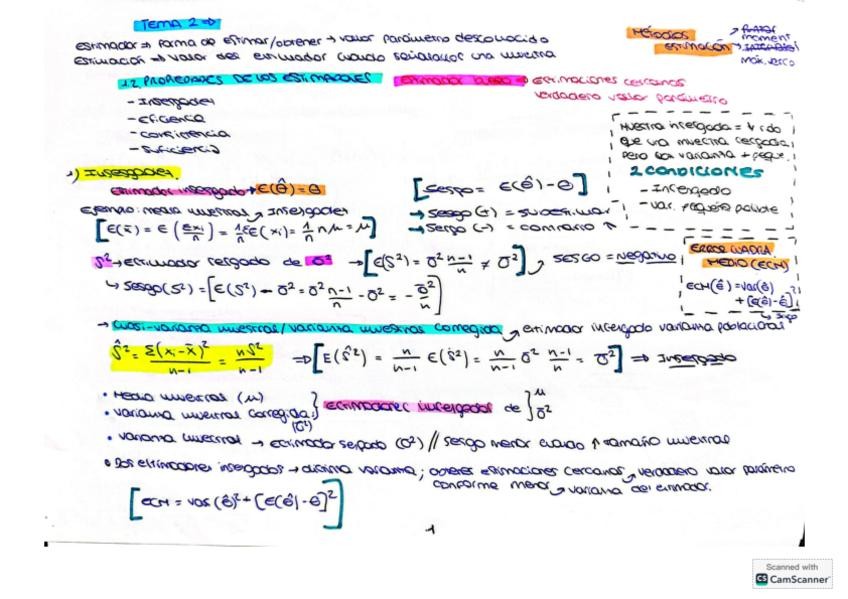 TEMA 2 ⇒
estimador ⇒ forma de estimar/obtener → valor parámetro desconocido
Estimación → valor del estimador cuando señalamos una muestra
Métodos
estimación
moment
máx. vero
1.2 PROPIEDADES DE LOS ESTIMADORES
estimador bueno ⇒ estimaciones cercanas
verdadero valor parámetro
- Insesgadez
- Eficiencia
- consistencia
- suficiencia
muestra insesgada =
que una muestra sesgada
pero con varianza + peque.
2 CONDICIONES
- Insesgado
- var. + pequeña posible
1) Insesgadez.
estimador insesgado → E(θ̂) = θ
[Sesgo = E(θ̂) - θ]
→ Sesgo (+) = sobestimar
→ Sesgo (-) = contrario ↑
Ejemplo: media muestral → Insesgadez
[E(x̄) = E(Σxi/n) = 1/n Σ E(xi) = 1/n n μ = μ]
S² → estimador sesgado de σ² → [E(S²) = σ² n-1/n ≠ σ²] → SESGO = negativo
↳ sesgo(S²) = [E(S²) - σ² = σ² n-1/n - σ² = - σ²/n]
ERROR CUADRA.
MEDIO (ECM)
ECM(θ̂) = Var(θ̂)
+ [E(θ̂) - θ]²
↳ sesgo
→ cuasi-varianza muestral/varianza muestral corregida → estimador insesgado varianza poblacional
Ŝ² = Σ(xi - x̄)²/n-1 = nS²/n-1 ⇒ [E(Ŝ²) = n/n-1 E(S²) = n/n-1 σ² n-1/n = σ²] ⇒ Insesgado
• Media muestral (μ)
• varianza muestral corregida (σ²)
} estimadores insesgados de } μ
σ²
• varianza muestral → estimador sesgado (σ²) // sesgo menor cuando ↑ tamaño muestral
• Dos estimadores insesgados → distinta varianza; obtener estimaciones cercanas → verdadero valor parámetro
conforme menor → varianza del estimador.
[ECM = var(θ̂)² + [E(θ̂) - θ]²]
1
Scanned with
CS CamScanner